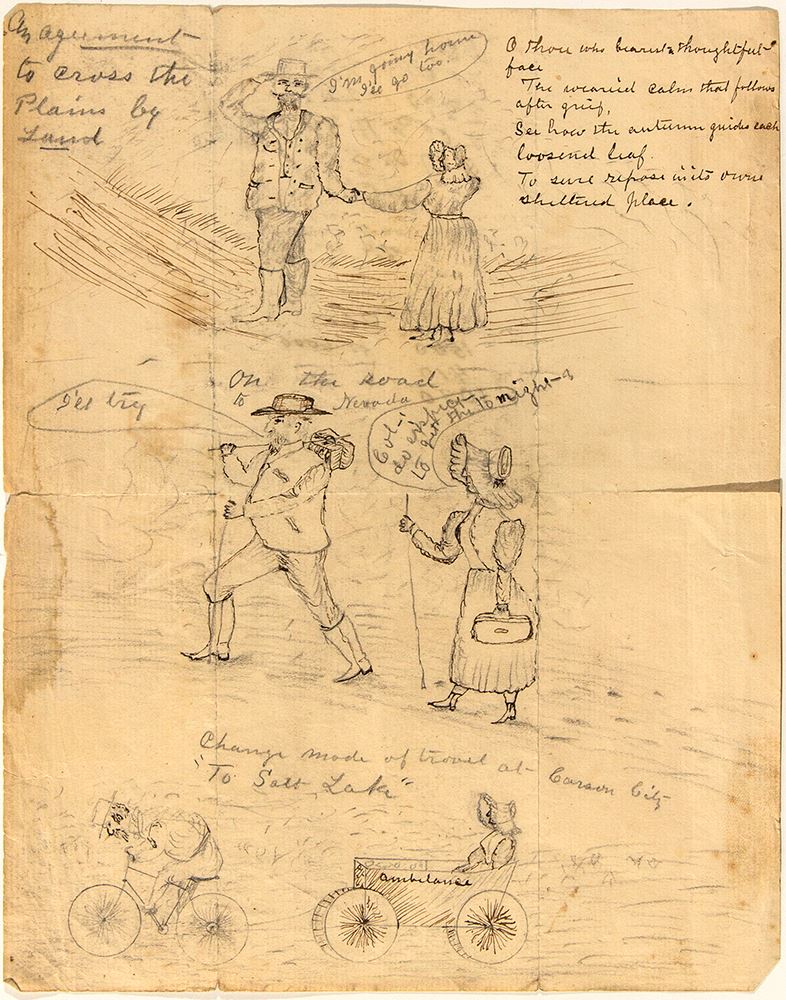 An agreement
to cross the
Plains by
Land
I'm going home
I'll go too.
O thou who bearest thoughtful
face
The wearied calm that follows
after grief,
See how the autumn guides each
loosend leaf.
To sure repose in its owne
sheltered place.
On the road
to Nevada
I'll try
Col-
do expect
to get
there to might
Change mode of travel at Carson City
"To Salt Lake"
ambulance